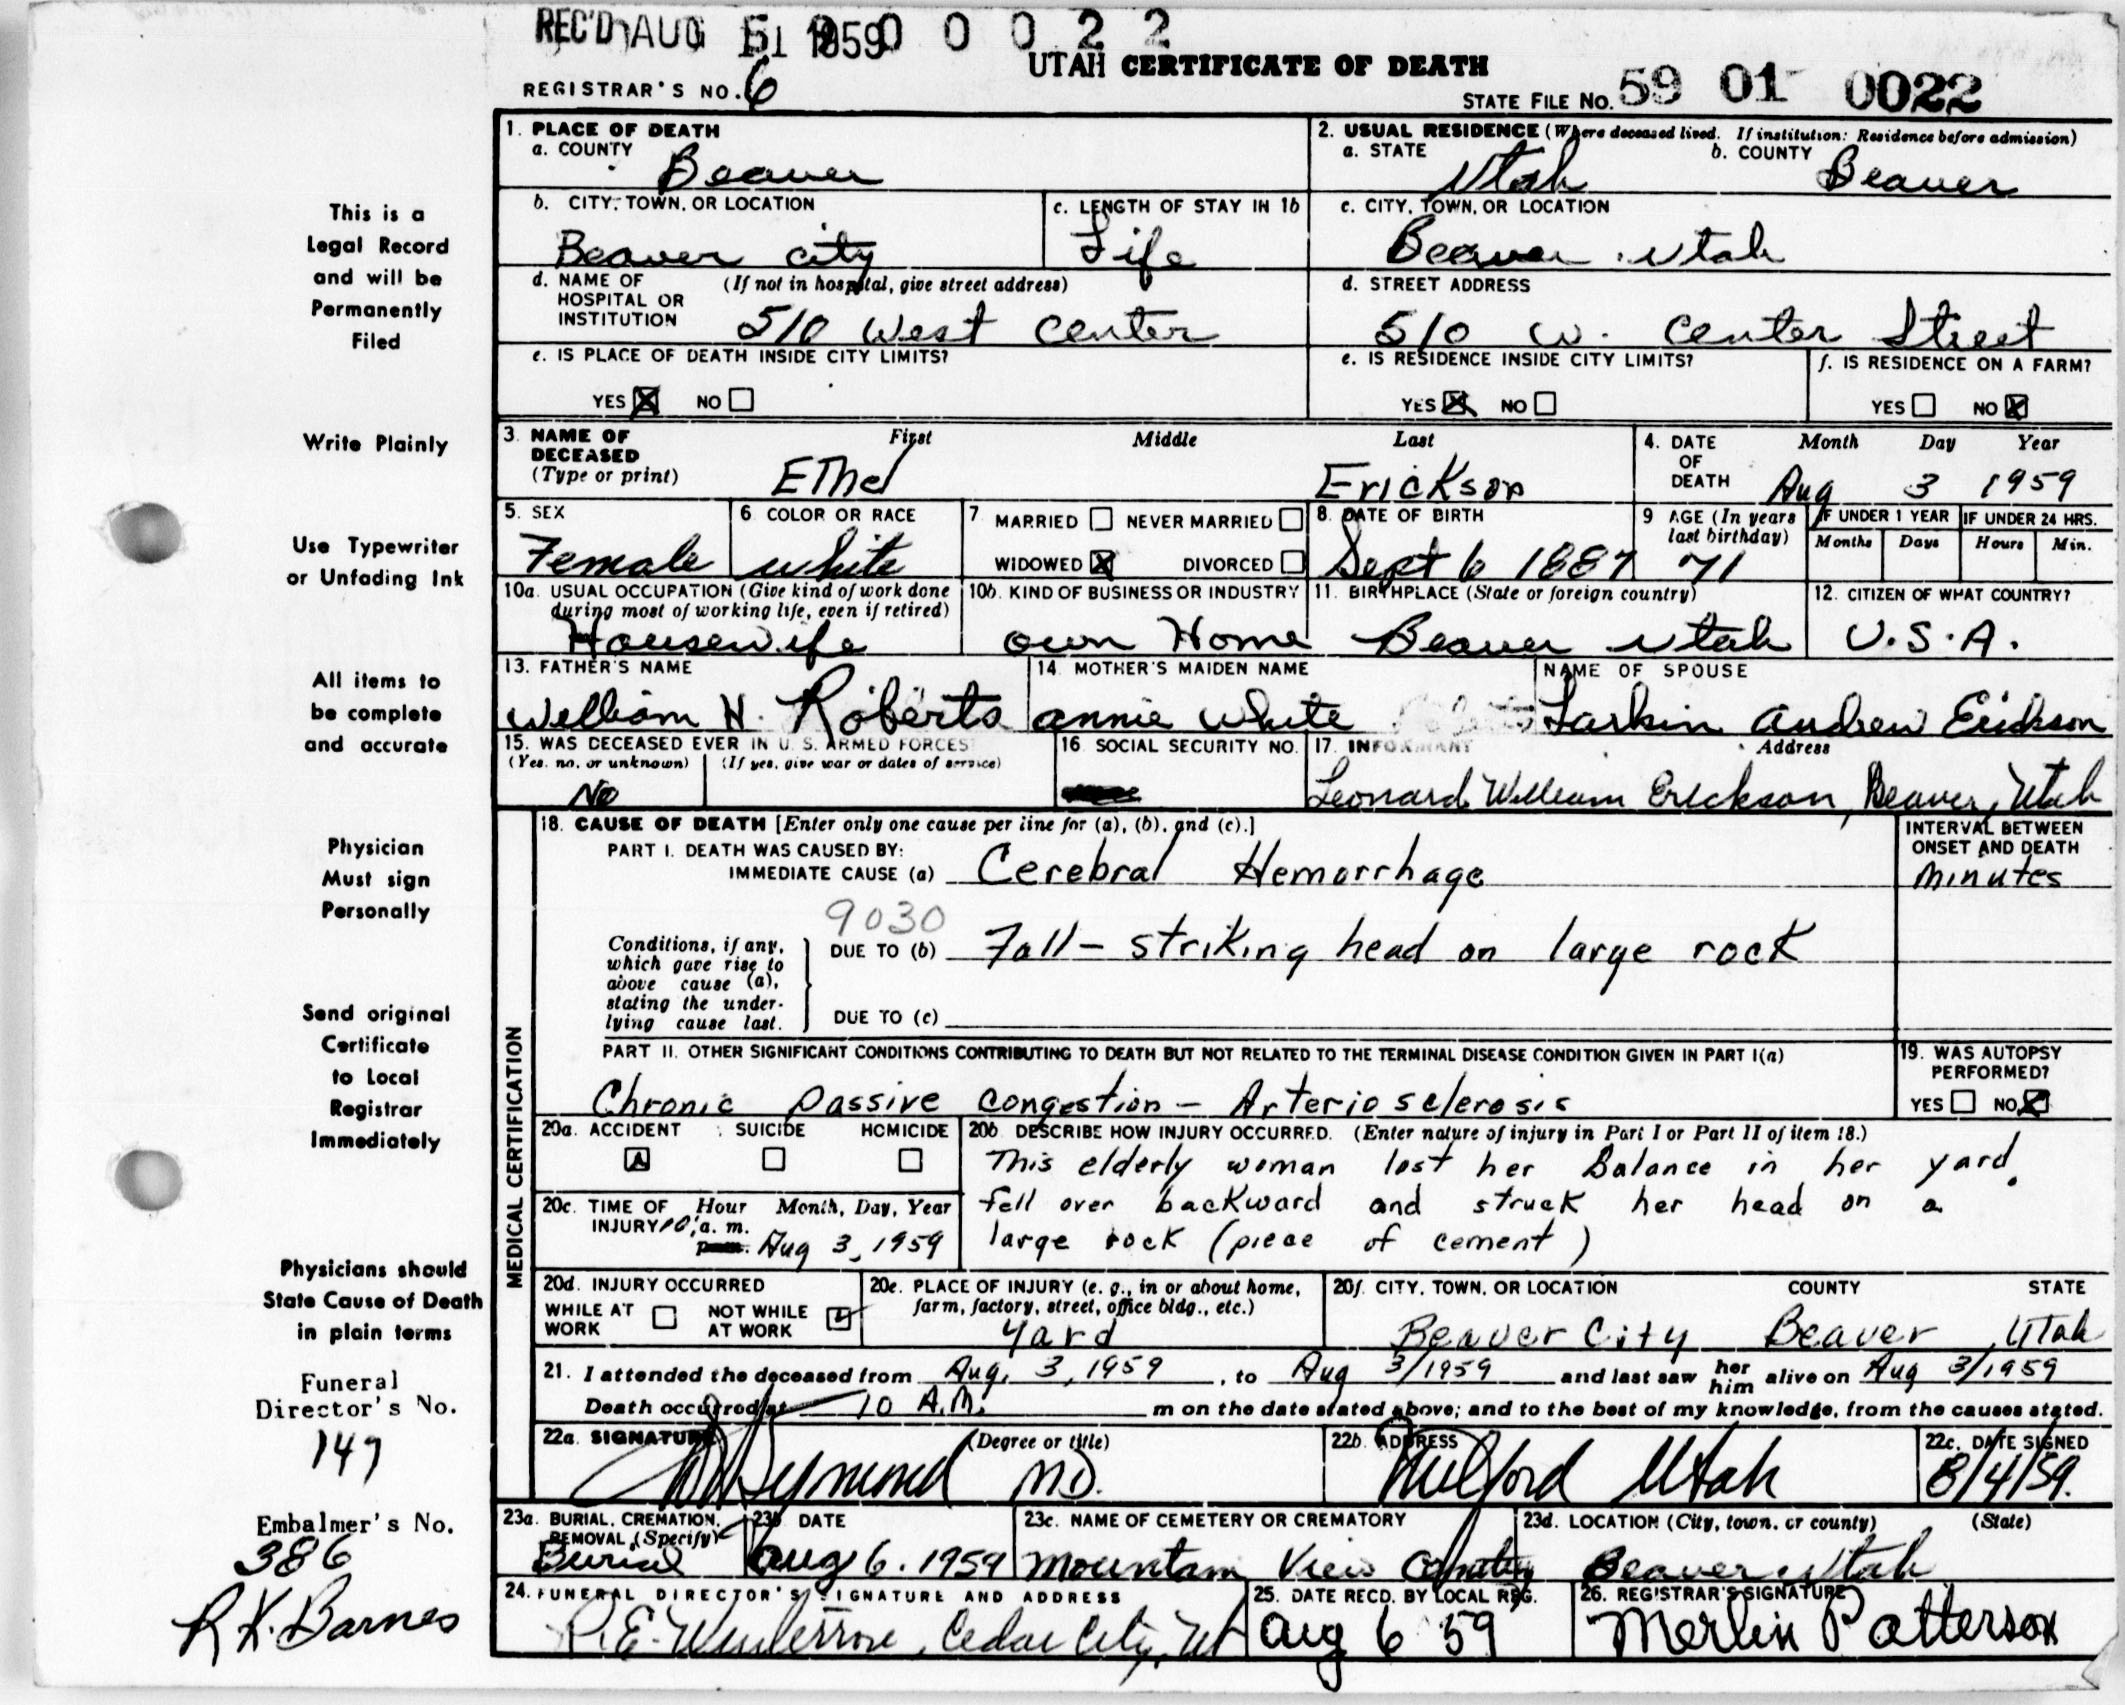 REC'D AUG 11 1959 0 0 0 2 2
UTAH CERTIFICATE OF DEATH
REGISTRAR'S NO. 6
STATE FILE NO. 59 01 0022
1. PLACE OF DEATH
a. COUNTY Beaver
2. USUAL RESIDENCE (Where deceased lived. If institution: Residence before admission)
a. STATE Utah b. COUNTY Beaver
b. CITY, TOWN, OR LOCATION Beaver city
c. LENGTH OF STAY IN 1b Life
c. CITY, TOWN, OR LOCATION Beaver Utah
d. NAME OF HOSPITAL OR INSTITUTION (If not in hospital, give street address) 510 West Center
d. STREET ADDRESS 510 W. Center Street
e. IS PLACE OF DEATH INSIDE CITY LIMITS?
YES X NO
e. IS RESIDENCE INSIDE CITY LIMITS?
YES X NO
f. IS RESIDENCE ON A FARM?
YES NO X
3. NAME OF DECEASED (Type or print) First Middle Last
Ethel Erickson
4. DATE OF DEATH Month Day Year
Aug 3 1959
5. SEX Female
6 COLOR OR RACE white
7 MARRIED NEVER MARRIED
WIDOWED X DIVORCED
8. DATE OF BIRTH Sept 6 1887
9 AGE (In years last birthday) 71
IF UNDER 1 YEAR Months Days
IF UNDER 24 HRS. Hours Min.
10a. USUAL OCCUPATION (Give kind of work done during most of working life, even if retired)
Housewife
10b. KIND OF BUSINESS OR INDUSTRY
own Home
11. BIRTHPLACE (State or foreign country)
Beaver Utah
12. CITIZEN OF WHAT COUNTRY?
U.S.A.
13. FATHER'S NAME
William H. Roberts
14 MOTHER'S MAIDEN NAME
annie White
NAME OF SPOUSE
Larkin Andrew Erickson
15. WAS DECEASED EVER IN U. S. ARMED FORCES
(Yes. no. or unknown) (If yes, give war or dates of service)
No
16 SOCIAL SECURITY NO.
17. INFORMANT Address
Leonard William Erickson, Beaver, Utah
MEDICAL CERTIFICATION
18. CAUSE OF DEATH [Enter only one cause per line for (a), (b), and (c).]
PART I. DEATH WAS CAUSED BY:
IMMEDIATE CAUSE (a) Cerebral Hemorrhage
INTERVAL BETWEEN ONSET AND DEATH
Minutes
9030
Conditions, if any, which gave rise to above cause (a), stating the underlying cause last.
DUE TO (b) Fall - striking head on large rock
DUE TO (c)
PART II. OTHER SIGNIFICANT CONDITIONS CONTRIBUTING TO DEATH BUT NOT RELATED TO THE TERMINAL DISEASE CONDITION GIVEN IN PART I(a)
Chronic passive congestion - Arteriosclerosis
19. WAS AUTOPSY PERFORMED?
YES NO X
20a. ACCIDENT SUICIDE HOMICIDE
20b DESCRIBE HOW INJURY OCCURRED. (Enter nature of injury in Part I or Part II of item 18.)
This elderly woman lost her Balance in her yard.
fell over backward and struck her head on a
large rock (piece of cement)
20c. TIME OF INJURY Hour Month, Day, Year
10: a. m. p.m. Aug 3, 1959
20d. INJURY OCCURRED
WHILE AT WORK NOT WHILE AT WORK
20e. PLACE OF INJURY (e. g., in or about home, farm, factory, street, office bldg., etc.)
Yard
20f. CITY, TOWN, OR LOCATION COUNTY STATE
Beaver City Beaver Utah
21. I attended the deceased from Aug. 3, 1959, to Aug 3/1959 and last saw her him alive on Aug 3/1959
Death occurred at 10 A.M. m on the date stated above; and to the best of my knowledge, from the causes stated.
22a. SIGNATURE (Degree or title)
Symond MD.
22b. ADDRESS
Milford Utah
22c. DATE SIGNED
8/4/59.
23a. BURIAL, CREMATION, REMOVAL (Specify)
Burial
23b DATE
Aug 6. 1959
23c. NAME OF CEMETERY OR CREMATORY
Mountain View
23d. LOCATION (City, town, or county) (State)
Beaver Utah
24. FUNERAL DIRECTOR'S SIGNATURE AND ADDRESS
Cedar City, Ut
25. DATE RECD. BY LOCAL REG.
Aug 6 59
26. REGISTRAR'S SIGNATURE
Merlin Patterson
This is a
Legal Record
and will be
Permanently
Filed
Write Plainly
Use Typewriter
or Unfading Ink
All items to
be complete
and accurate
Physician
Must sign
Personally
Send original
Certificate
to Local
Registrar
Immediately
Physicians should
State Cause of Death
in plain terms
Funeral
Director's No.
149
Embalmer's No.
386
R K. Barnes